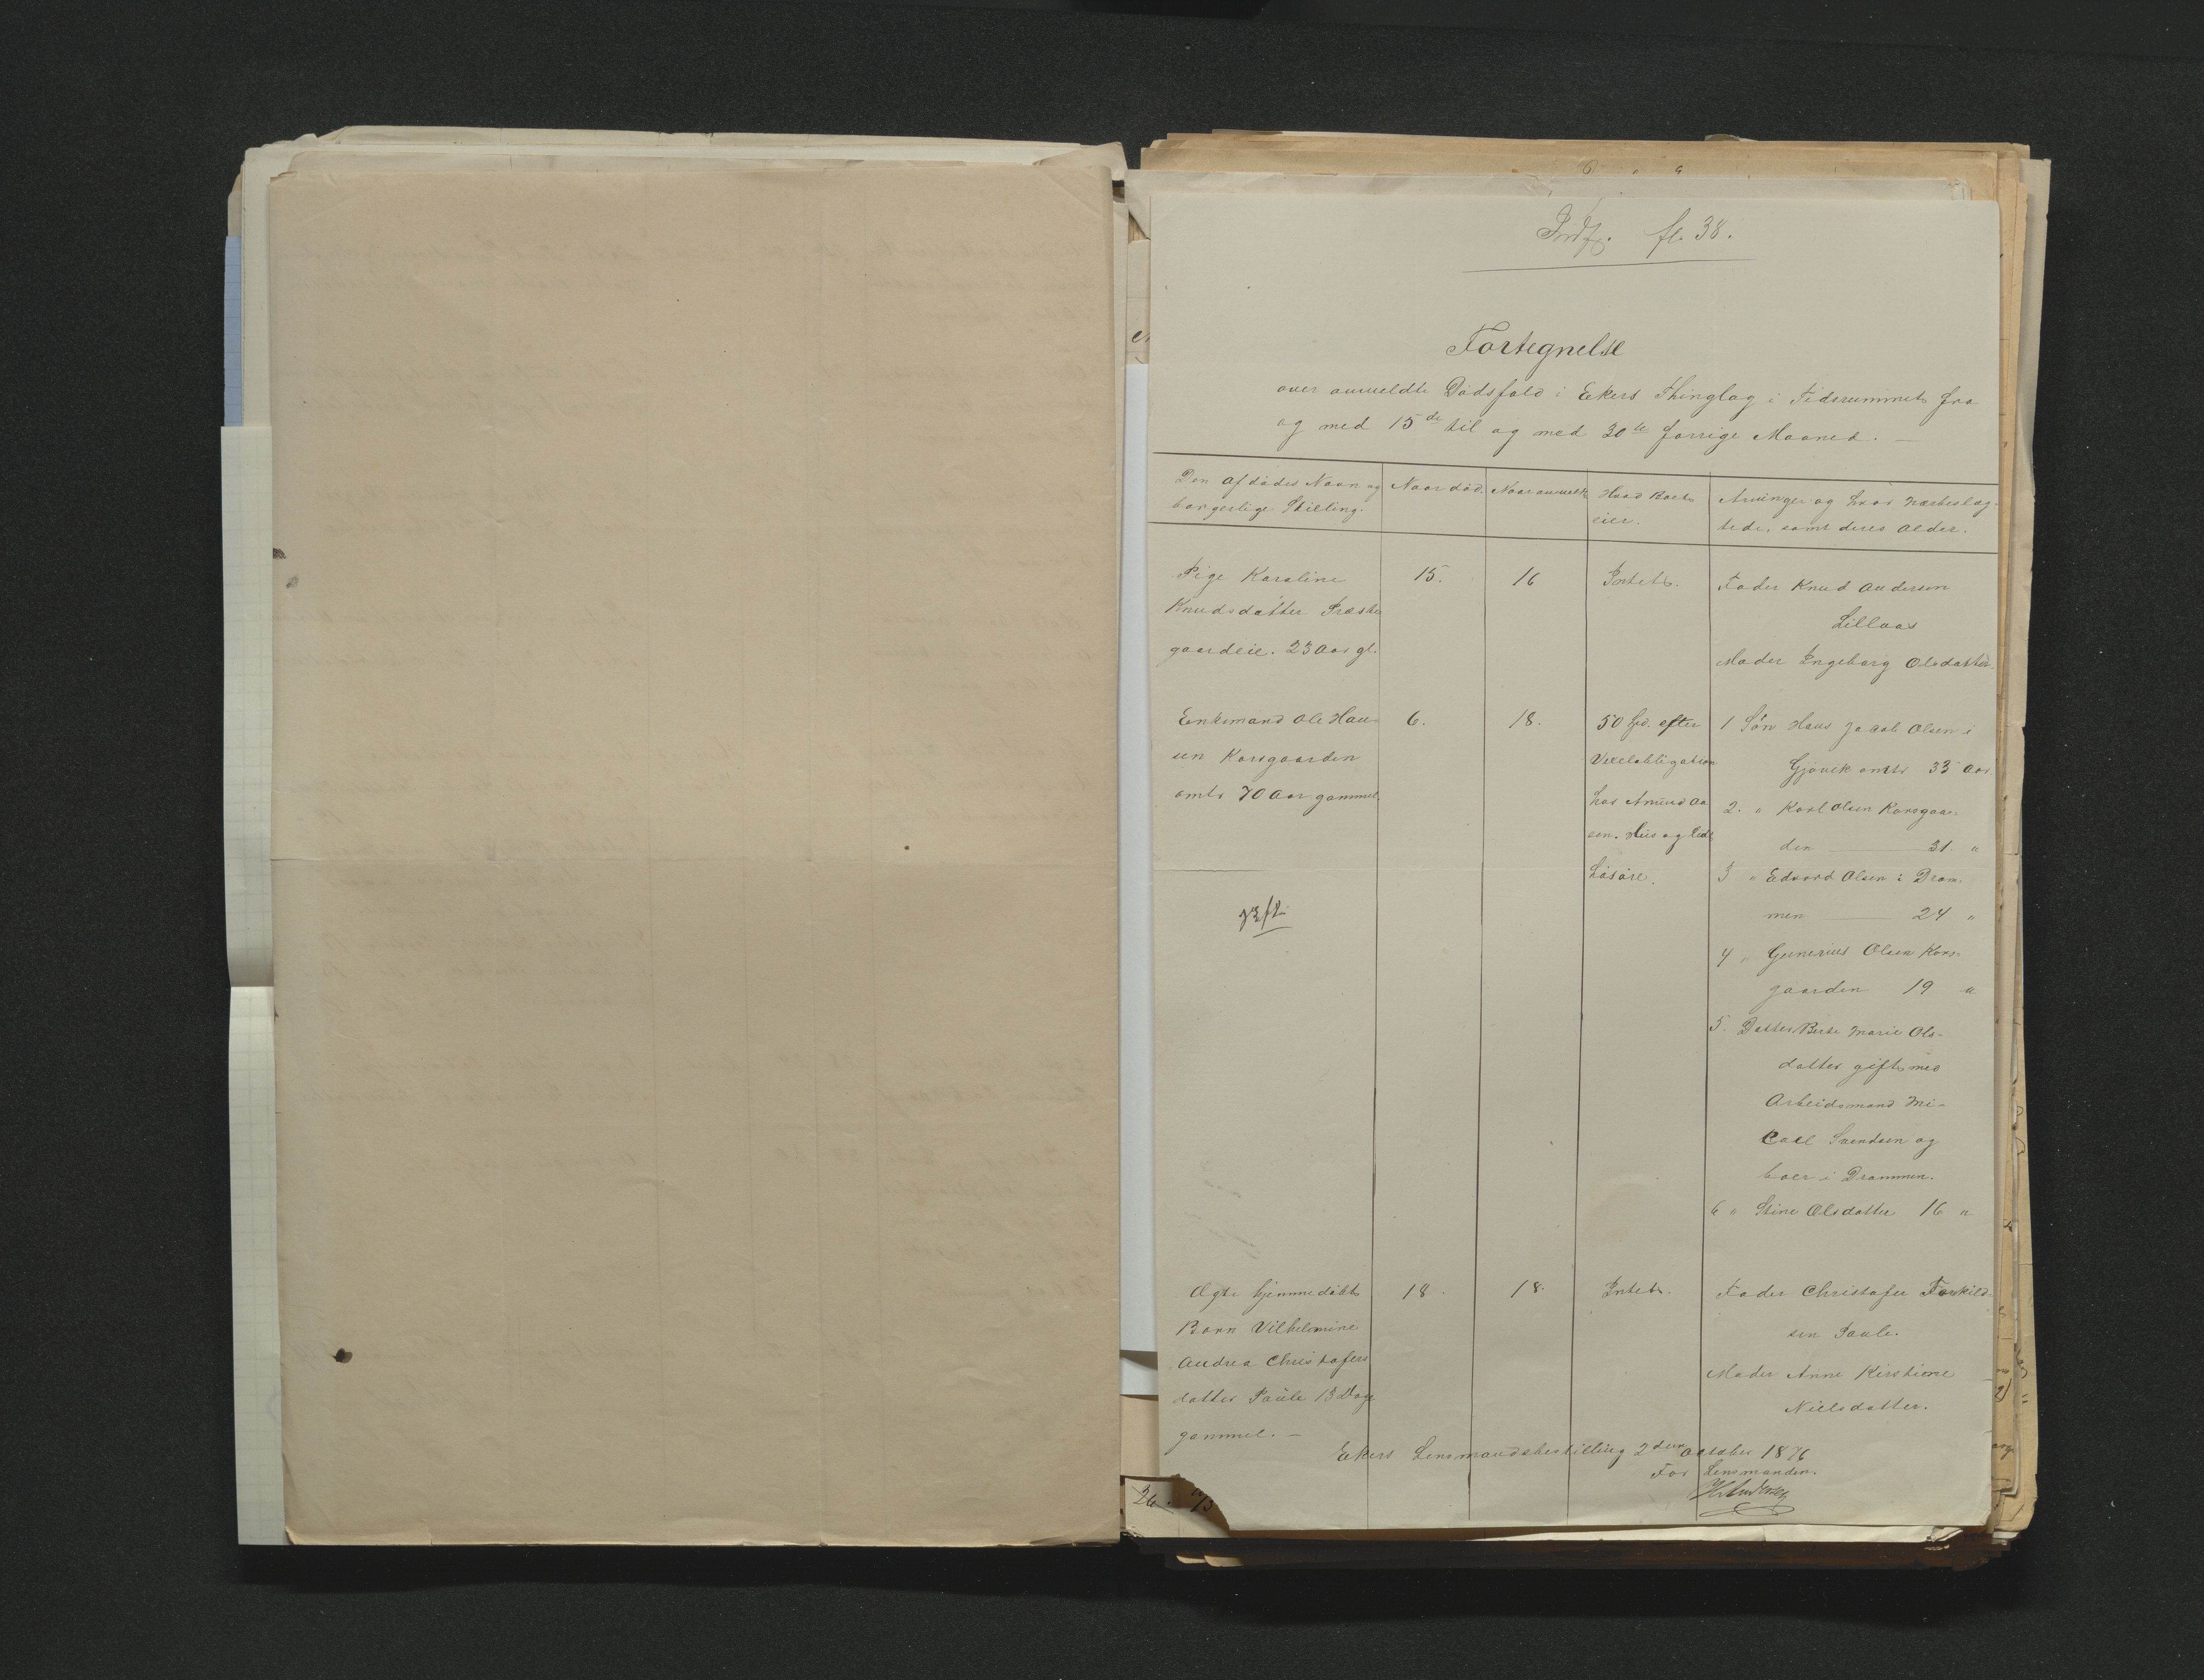 Indf. fl. 38.
Fortegnelse
over anmeldte Dødsfald i Ekers Thinglag i Tidsrummet fra
og med 15de til og med 30te forrige Maaned. —
Den afdødes Navn og
borgerlige Stilling.
Naar død.
Naar anmeldt
Hvad Boet
eier.
Arvinger og hvor nærbeslæg-
tede, samt deres Alder.
Pige Karoline
Knudsdatter Præste
gaardeie. 23 Aar gl.
15.
16
Intet.
Fader Knud Andersen
Lillaas
Moder Ingeborg Olsdatter
Enkemand Ole Han-
sen Korsgaarden
omtr 70 Aar gammel.
6.
18.
50 Spd. efter
Vexelobligation
hos Amund Aa
sen. Hus og lidt
Løsøre.
1 Søn Hans Jacob Olsen i
Gjøvik omtr 33 Aar
2. " Karl Olsen Korsgaar-
den — 31. "
3 " Edvard Olsen i Dram-
men — 24 "
4 " Gunerius Olsen Kors-
gaarden 19 "
5. Datter Berte Marie Ols-
datter gift med
Arbeidsmand Mi-
cael Svendsen og
boer i Drammen.
6 " Stine Olsdatter 16 "
Ægte hjemmedøbt
Barn Vilhelmine
Andrea Christofers
datter Saule 13 Dage
gammel. —
18.
18.
Intet.
Fader Christofer Torkild-
sen Saule.
Moder Anne Kirstine
Nielsdatter.
Ekers Lensmandsbestilling 2den October 1876
For Lensmanden.
H. Andersen
26.